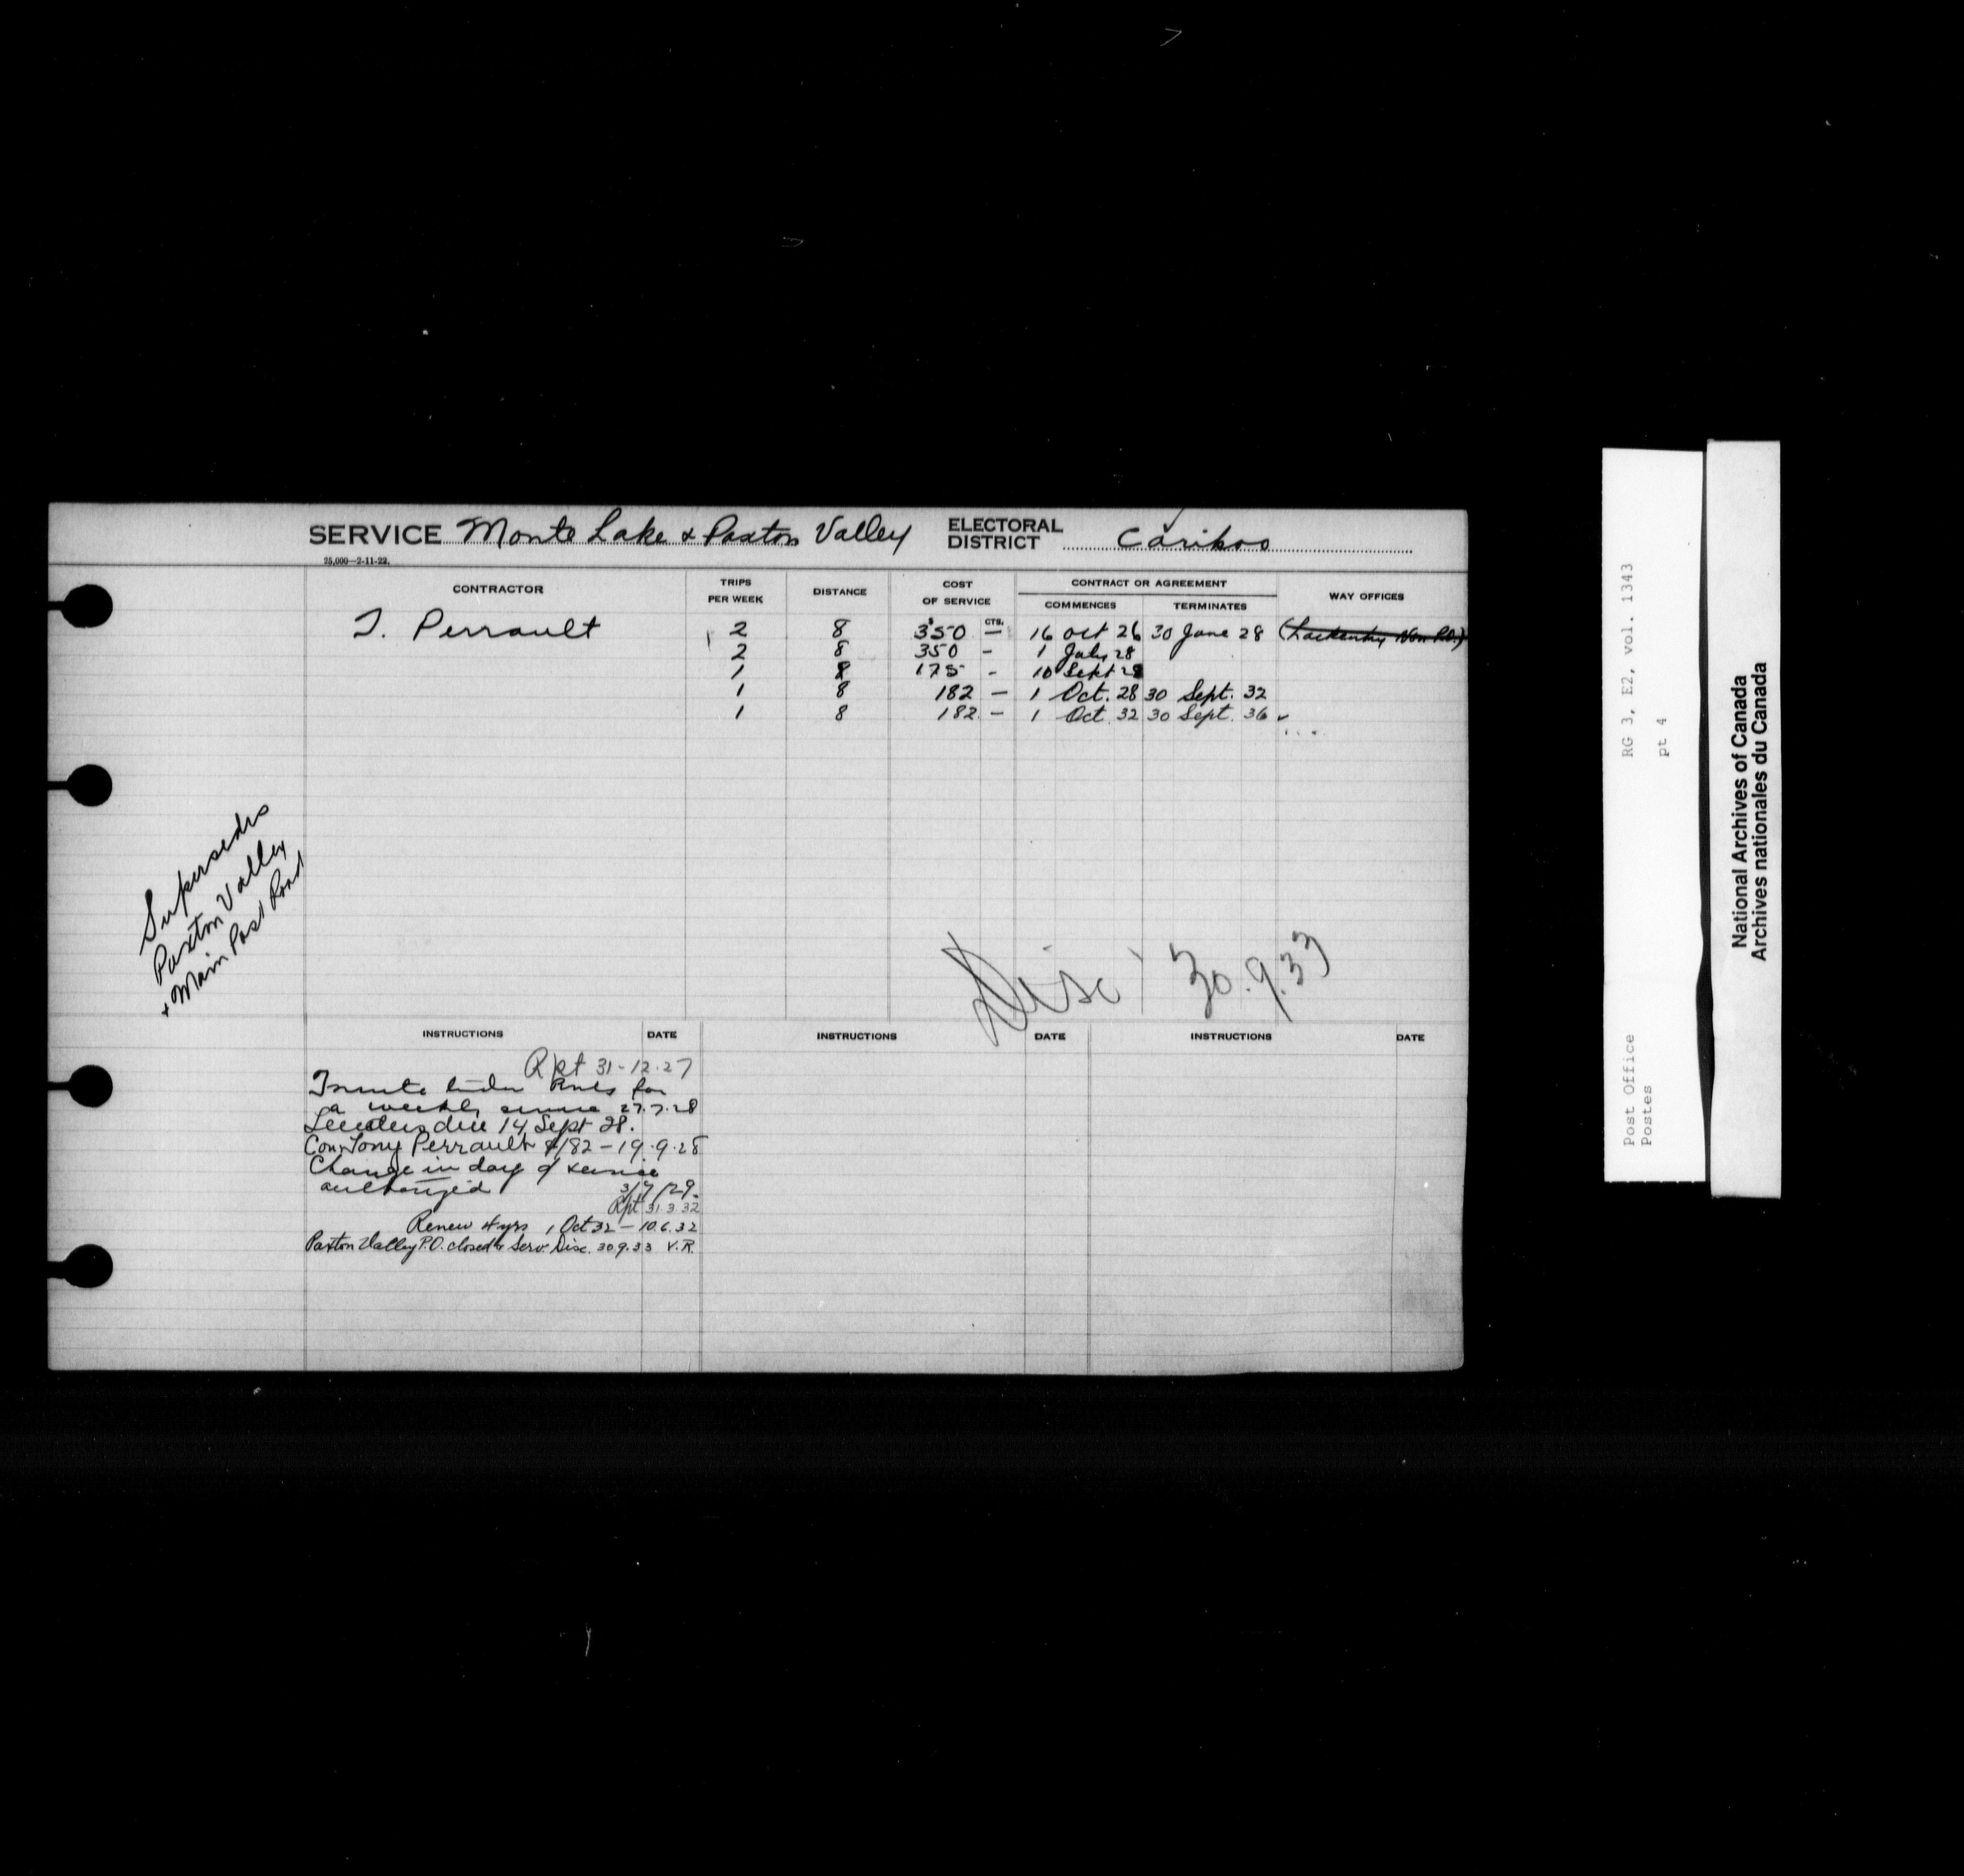 SERVICE Monte Lake & Paxton Valley ELECTORAL DISTRICT Cariboo
75,000—2-11-22.
CONTRACTOR TRIPS PER WEEK DISTANCE COST OF SERVICE CONTRACT OR AGREEMENT WAY OFFICES
COMMENCES TERMINATES
$ CTS.
T. Perrault 2 8 350 — 16 Oct 26 30 June 28
2 8 350 - 1 July 28
1 8 175 - 10 Sept 28
1 8 182 — 1 Oct. 28 30 Sept. 32
1 8 182 — 1 Oct. 32 30 Sept. 36
Supersedes
Paxton Valley
& Main Post Road
Disc 30.9.33
INSTRUCTIONS DATE INSTRUCTIONS DATE INSTRUCTIONS DATE
Rpt 31-12-27
Invite tender for
a weekly service 27.7.28
Tenders due 14 Sept 28.
Con Tony Perrault $182 — 19.9.28
Change in day of service
authorized 3/7/29.
Rpt 31 3 32
Renew 4 yrs 1 Oct 32 — 10.6.32
Paxton Valley P.O. closed & Serv. Disc. 30 9.33 V.R.
RG 3, E2, vol. 1343
pt 4
Post Office
Postes
National Archives of Canada
Archives nationales du Canada